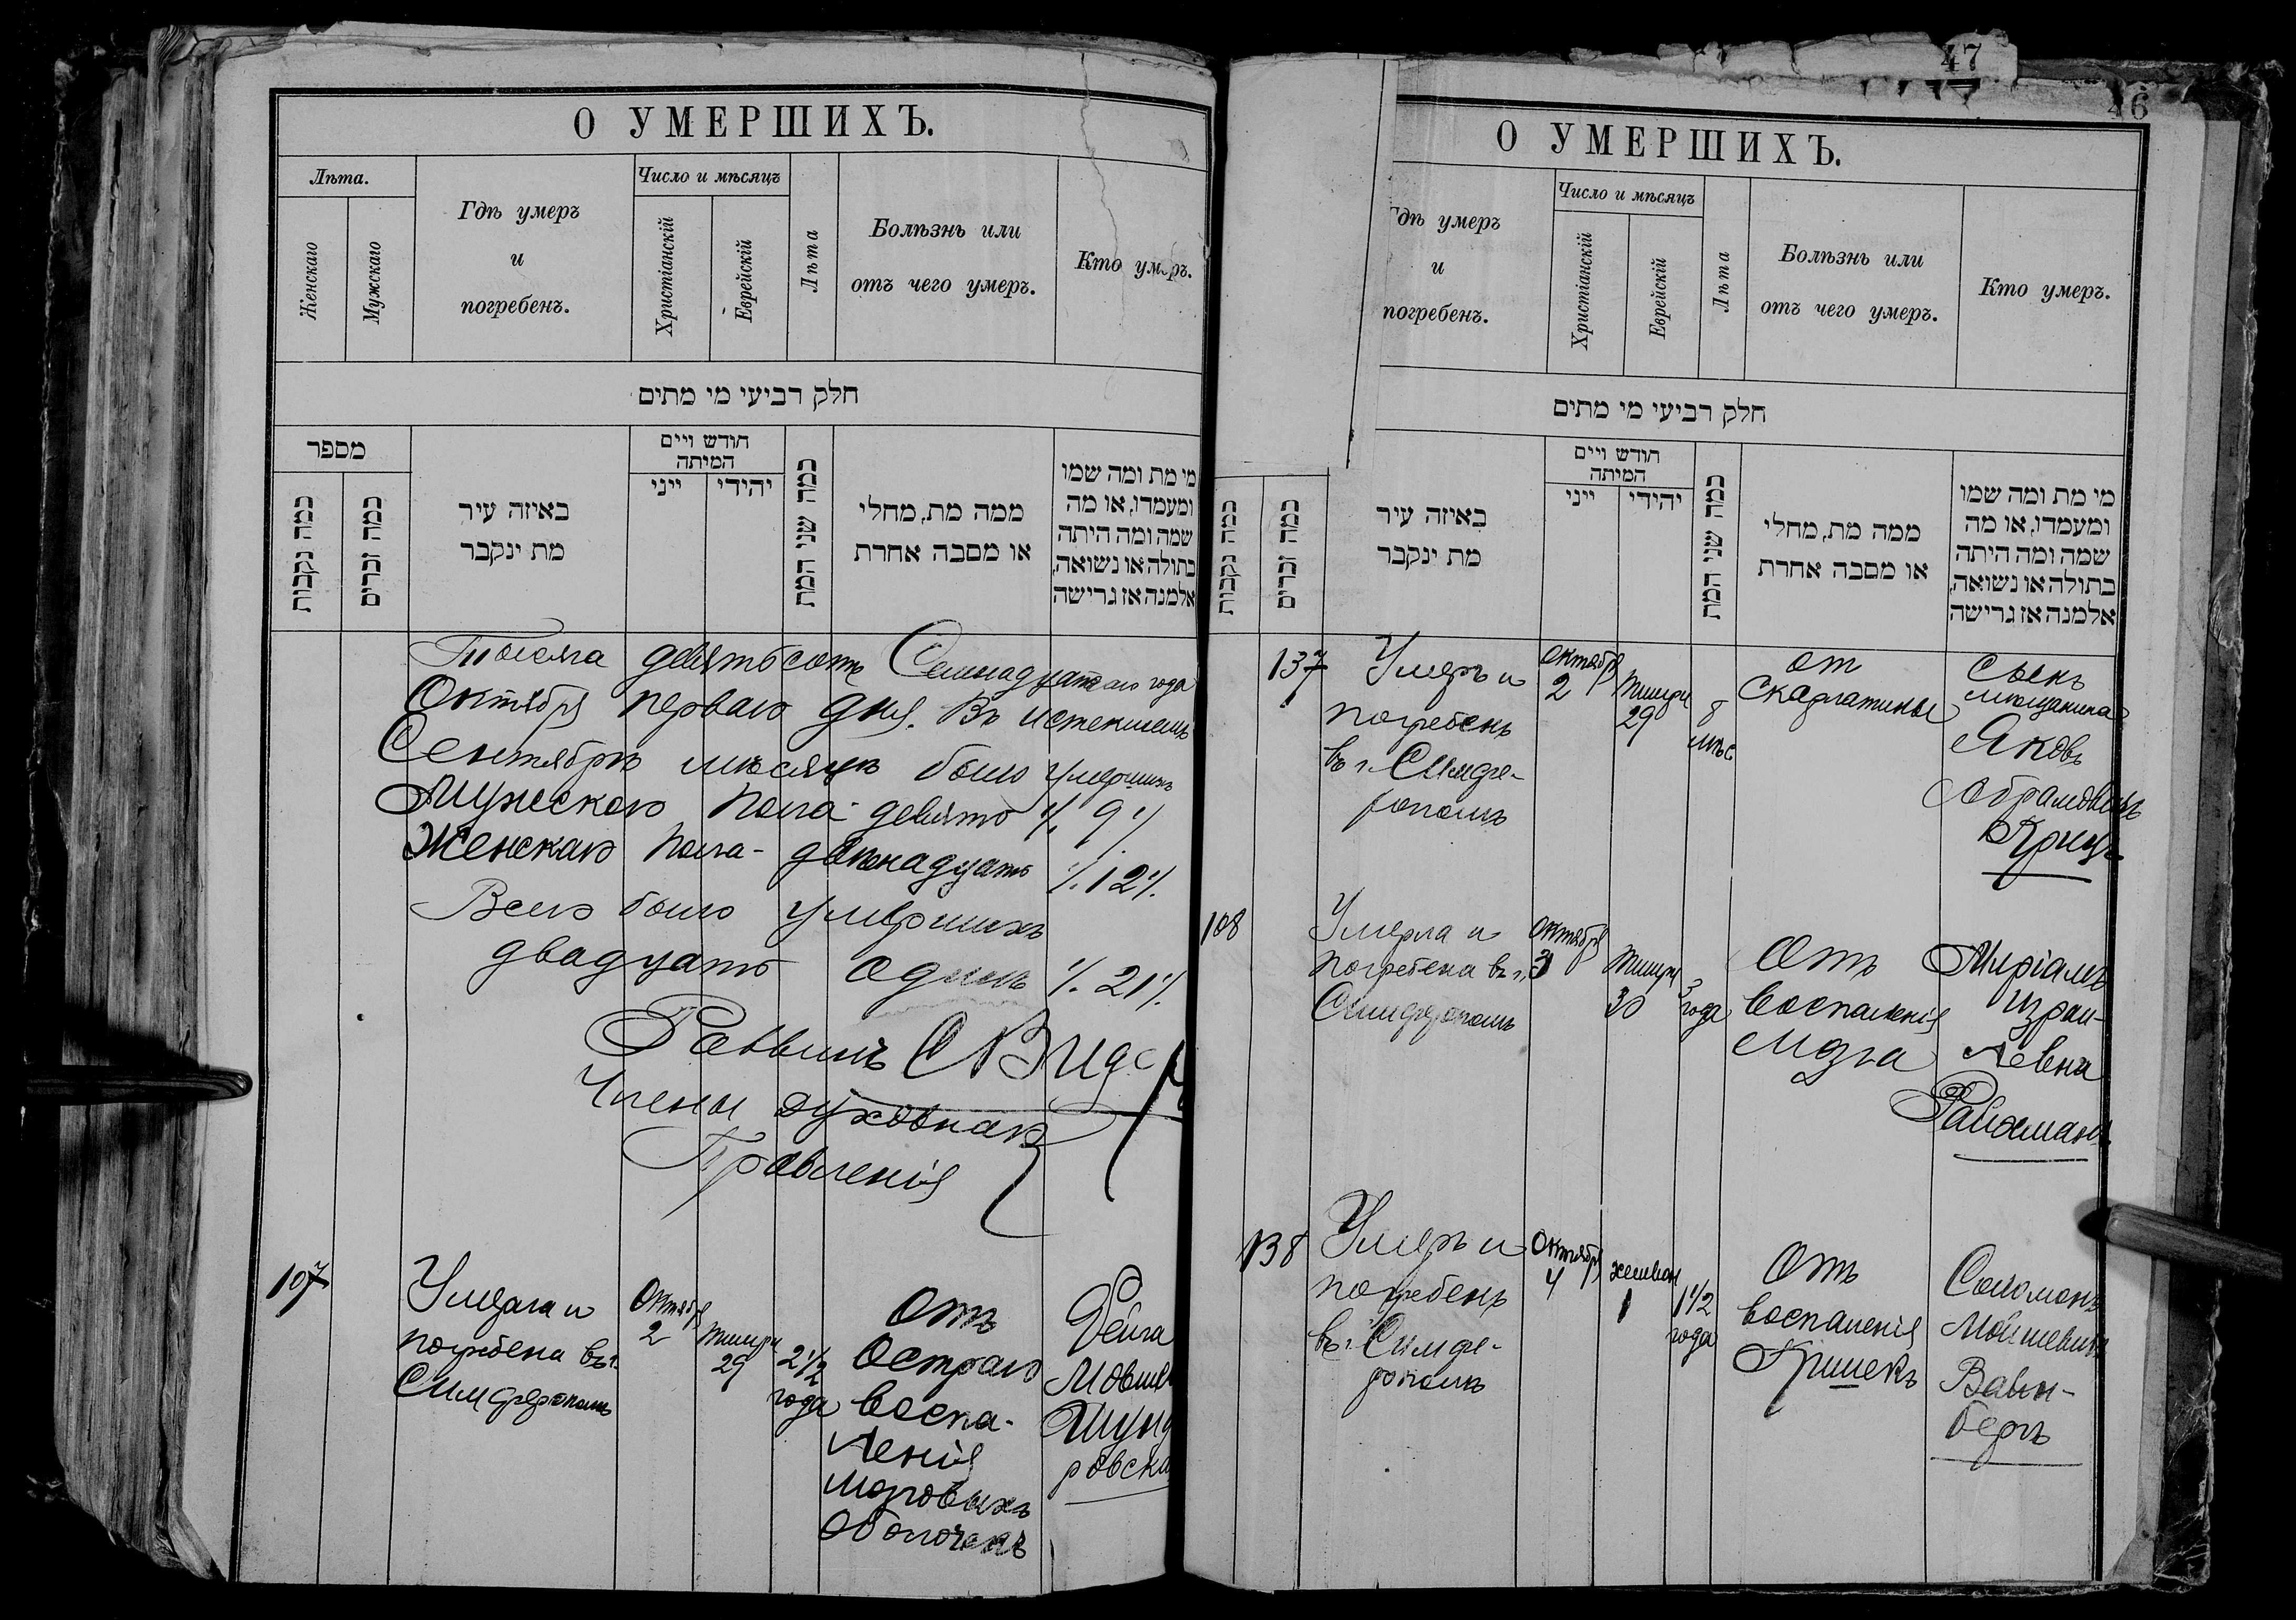 О УМЕРШИХЪ.
Лѣта.
Женскаго
Мужскаго
Гдѣ умеръ
и
погребенъ.
Число и мѣсяцъ
Христіанскій
Еврейскій
Лѣта
Болѣзнь или
отъ чего умеръ.
Кто умеръ.
חלק רביעי מי מתים
מספר
כמה נקבות
כמה זכרים
באיזה עיר
מת ינקבר
חודש ויים
המיתה
ייני
יהידי
כמה שני המת
ממה מת, מחלי
או מסבה אחרת
מי מת ומה שמו
ומעמדו, או מה
שמה ומה היתה
בתולה או נשואה,
אלמנה אז גרישה
Тысяча девятьсотъ Семнадцатаго года
Октября перваго дня. Въ истекшемъ
Сентябрѣ мѣсяцѣ было умершихъ
Мужского пола - девять ./. 9 ./.
Женскаго пола - двѣнадцать ./. 12 ./.
Всего было умершихъ
двадцать одинъ ./. 21 ./.
Раввинъ
Члены духовнаго
Правленія
107
Умерла и
погребена въ г.
Симферополѣ
Октября
2
тишри
29
2 1/2
года
Отъ
Остраго
воспа-
ленія
мозговыхъ
оболочекъ
Фейга
Мовше
Шунд
ровска
47
46
О УМЕРШИХЪ.
Гдѣ умеръ
и
погребенъ.
Число и мѣсяцъ
Христіанскій
Еврейскій
Лѣта
Болѣзнь или
отъ чего умеръ.
Кто умеръ.
חלק רביעי מי מתים
כמה נקבות
כמה זכרים
באיזה עיר
מת ינקבר
חודש ויים
המיתה
ייני
יהידי
כמה שני המת
ממה מת, מחלי
או מסבה אחרת
מי מת ומה שמו
ומעמדו, או מה
שמה ומה היתה
בתולה או נשואה,
אלמנה אז גרישה
137
Умеръ и
погребенъ
въ г. Симфе-
рополѣ
Октября
2
тишри
29
8
мѣс
от
Скарлатины
Сынъ
мѣщанина
Яковъ
Абрамовичъ
Крицъ
108
Умерла и
погребена въ г.
Симферополѣ
Октября
3
тишри
30
3
года
Отъ
воспаленія
мозга
Миріамъ
Израи-
левна
Райхманъ
138
Умеръ и
погребенъ
въ г. Симфе-
рополѣ
Октября
4
хешвон
1
1 1/2
года
Отъ
воспаленія
Кишекъ
Соломонъ
Мойшевичъ
Вайн-
бергъ